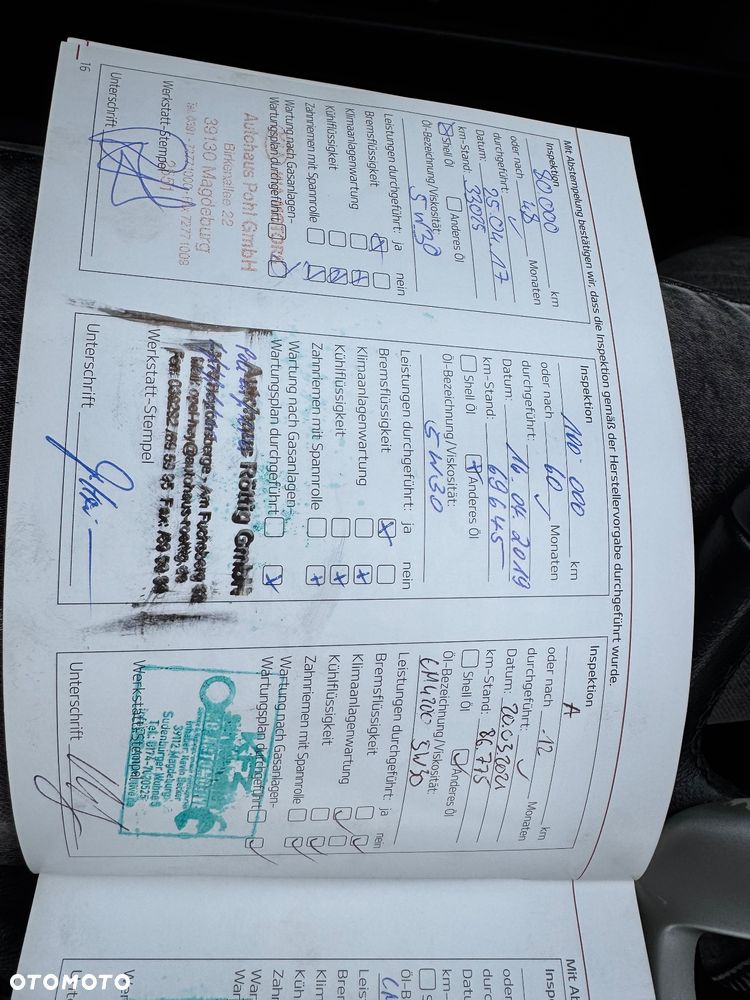 Mit Abstempelung bestätigen wir, dass die Inspektion gemäß der Herstellervorgabe durchgeführt wurde.
Inspektion
80000 km
oder nach 48 Monaten
durchgeführt: ✓
Datum: 25.04.17
km-Stand: 33085
☒ Shell Öl ☐ Anderes Öl
Öl-Bezeichnung/Viskosität:
5W30
Leistungen durchgeführt: ja nein
Bremsflüssigkeit
Klimaanlagenwartung
Kühlflüssigkeit
Zahnriemen mit Spannrolle
Wartung nach Gasanlagen-
Wartungsplan durchgeführt
Autohaus Pohl GmbH
Birkenallee 22
39130 Magdeburg
Werkstatt-Stempel
Unterschrift
16
Inspektion
100.000 km
oder nach 60 Monaten
durchgeführt: ✓
Datum: 16.04.2019
km-Stand: 69645
☐ Shell Öl ☒ Anderes Öl
Öl-Bezeichnung/Viskosität:
5W30
Leistungen durchgeführt: ja nein
Bremsflüssigkeit
Klimaanlagenwartung
Kühlflüssigkeit
Zahnriemen mit Spannrolle
Wartung nach Gasanlagen-
Wartungsplan durchgeführt
Autohaus Röttig GmbH
Am Fuchsberg
Werkstatt-Stempel
Unterschrift
Inspektion
A km
oder nach 12 Monaten
durchgeführt: ✓
Datum: 20.03.2021
km-Stand: 86.775
☐ Shell Öl ☑ Anderes Öl
Öl-Bezeichnung/Viskosität:
5W30
Leistungen durchgeführt: ja nein
Bremsflüssigkeit
Klimaanlagenwartung
Kühlflüssigkeit
Zahnriemen mit Spannrolle
Wartung nach Gasanlagen-
Wartungsplan durchgeführt
KFZ
39112 Magdeburg
Sudenburger Wuhne
Werkstatt-Stempel
Unterschrift
OTOMOTO